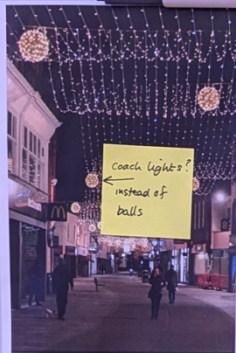 coach lights?
instead of
balls